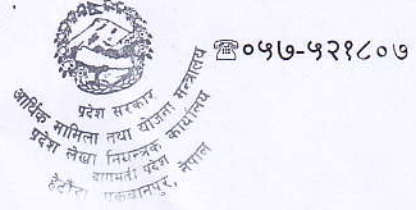 ☎०५७-५२१८०७
प्रदेश सरकार
आर्थिक मामिला तथा योजना मन्त्रालय
प्रदेश लेखा नियन्त्रक कार्यालय
बागमती प्रदेश
हेटौंडा मकवानपुर, नेपाल